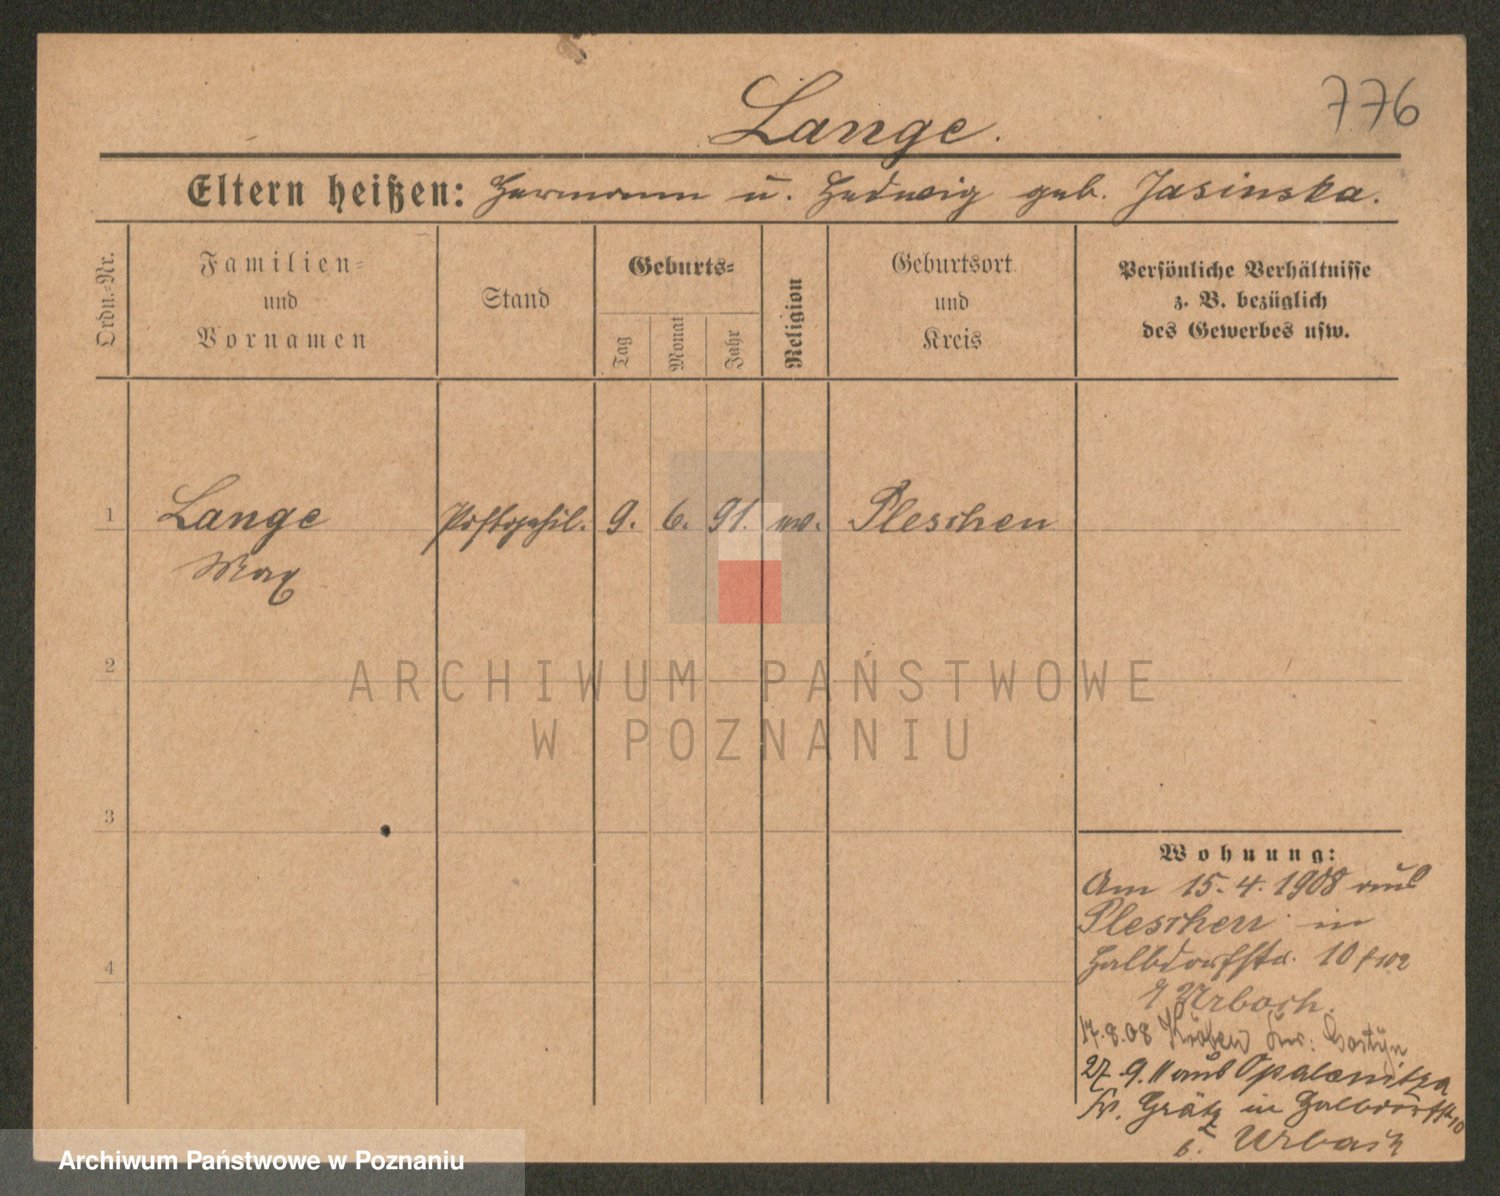 776
Lange.
Eltern heißen: Hermann u. Hedwig geb. Jasinska.
Ordn.-Nr.
Familien-
und
Vornamen
Stand
Geburts-
Tag
Monat
Jahr
Religion
Geburtsort
und
Kreis
Persönliche Verhältnisse
z. B. bezüglich
des Gewerbes usw.
1 Lange Postgehil. 9. 6. 91. ev. Pleschen
Max
2
3
4
Wohnung:
Am 15.4.1908 aus
Pleschen in
Halbdorfstr. 10
Urbach.
17.8.08 Kröben Kr: Gostyn
27.9.11 aus Opalenitza
Kr. Grätz in Halbdorfstr 10
b. Urbach
ARCHIWUM PAŃSTWOWE
W POZNANIU
Archiwum Państwowe w Poznaniu